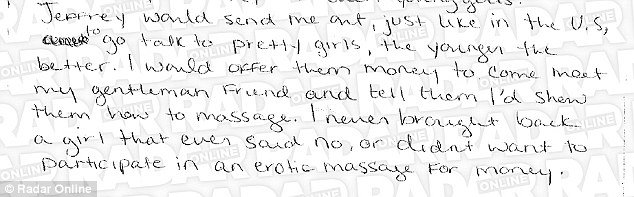 Jeffrey would send me out, just like in the U.S,
to go talk to pretty girls, the younger the
better. I would offer them money to come meet
my gentleman friend and tell them I'd show
them how to massage. I never brought back
a girl that ever said no, or didnt want to
participate in an erotic massage for money.
© Radar Online